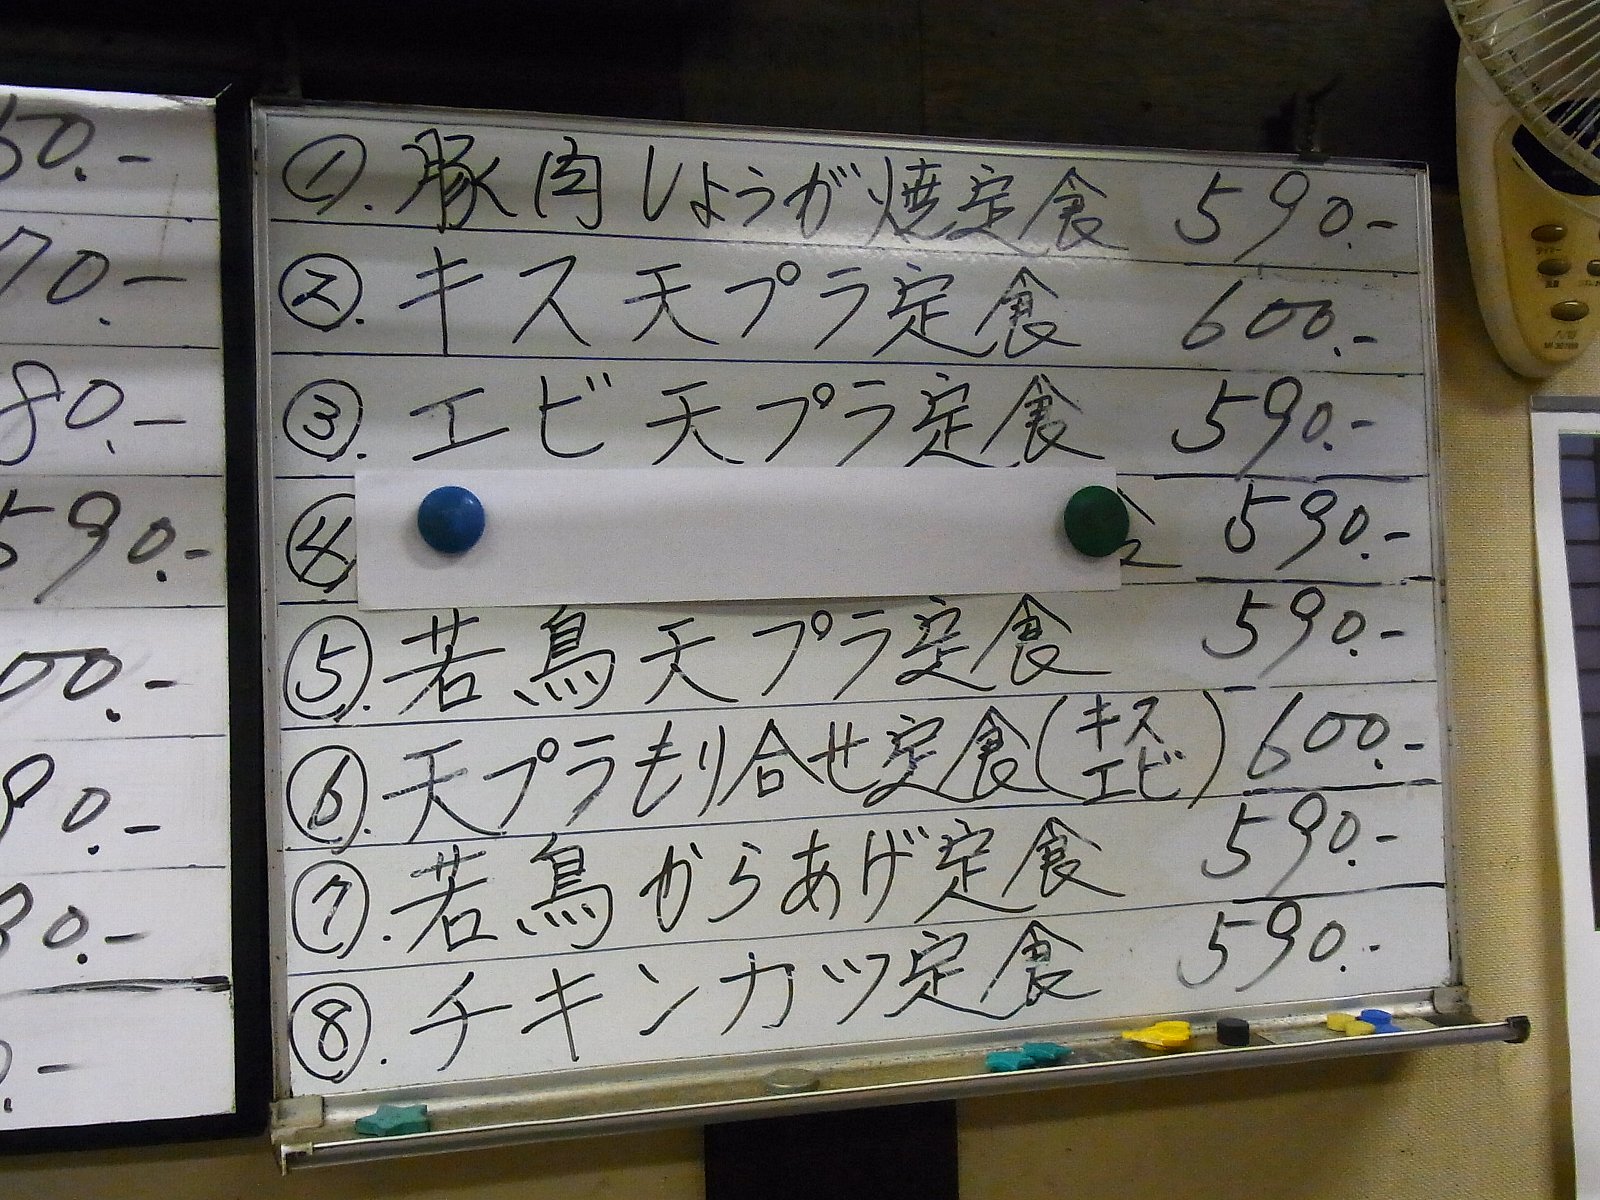 50.-
70.-
80.-
590.-
00.-
90.-
90.-
①. 豚肉しょうが焼定食 590.-
②. キス天プラ定食 600.-
③. エビ天プラ定食 590.-
④ 590.-
⑤. 若鳥天プラ定食 590.-
⑥. 天プラもり合せ定食(キスエビ) 600.-
⑦. 若鳥からあげ定食 590.-
⑧. チキンカツ定食 590.-